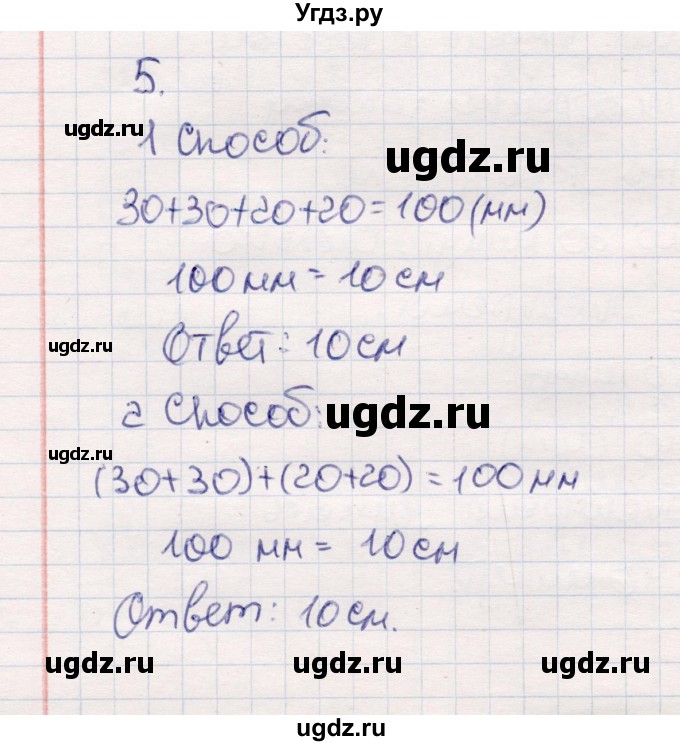 Угдз.ру
5.
ugdz.ru
1 способ:
ugdz.ru
30+30+20+20=100(мм)
100мм = 10см
ugdz.ru
Ответ: 10см
2 способ:
ugdz.ru
ugdz.ru
(30+30)+(20+20)=100мм
100 мм = 10см
Ответ: 10см.
ugdz.ru ugdz.ru ugdz.ru
ugdz.ru